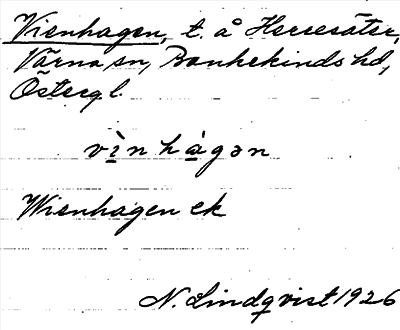 Vienhagen, t. å Herresäter,
Värna sn, Bankekinds hd,
Östergl.
vìnhàgən
Wienhagen ek
N. Lindqvist 1926